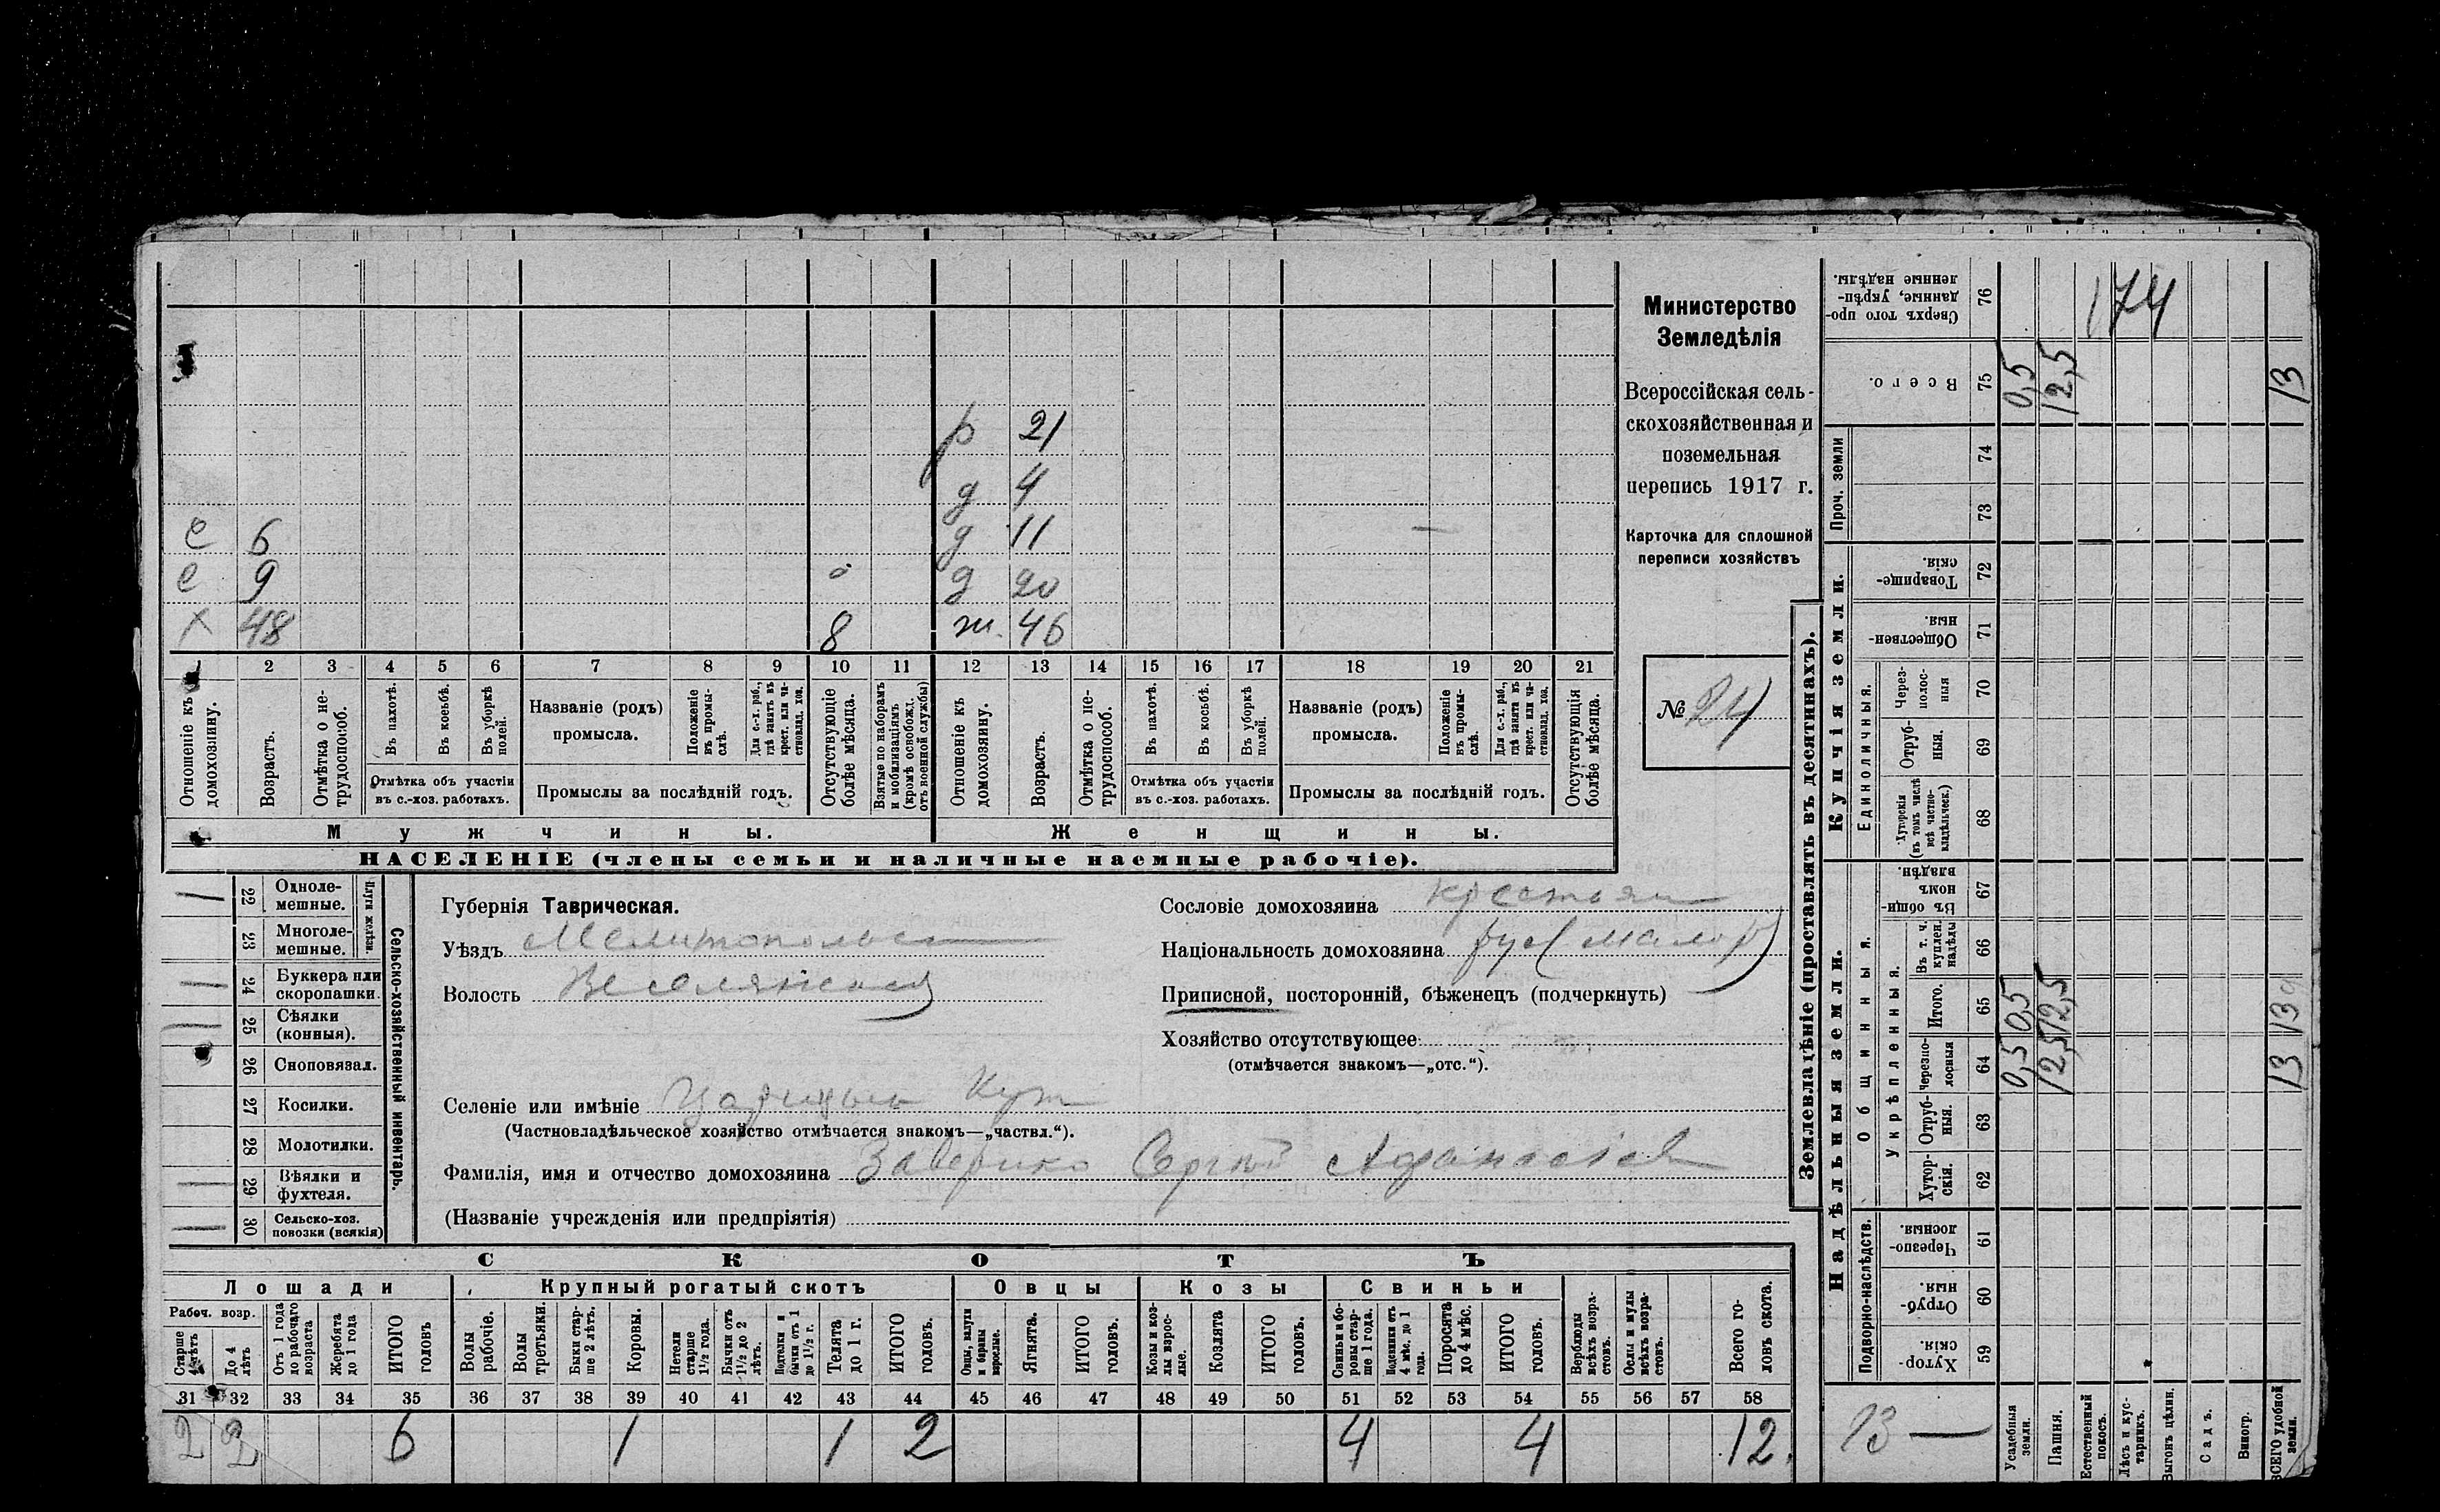 Министерство
Земледѣлія
Всероссійская сель-
скохозяйственная и
поземельная
перепись 1917 г.
Карточка для сплошной
переписи хозяйствъ
№ 24
р 21
д 4
с 6 д 11
с 9 д 20
х 48 8 ж. 46
1 2 3 4 5 6 7 8 9 10 11 12 13 14 15 16 17 18 19 20 21
Отношеніе къ домохозяину.
Возрастъ.
Отмѣтка о не-трудоспособ.
Въ пахотѣ.
Въ косьбѣ.
Въ уборкѣ полей.
Отмѣтка объ участіи
въ с.-хоз. работахъ.
Названіе (родъ)
промысла.
Положеніе въ промы-слѣ.
Для с.-х. раб., гдѣ занятъ въ крест. или ча-стновлад. хоз.
Промыслы за послѣдній годъ.
Отсутствующіе болѣе мѣсяца.
Взятые по наборамъ и мобилизаціямъ (кромѣ освобожд. отъ военной службы)
Отношеніе къ домохозяину.
Возрастъ.
Отмѣтка о не-трудоспособ.
Въ пахотѣ.
Въ косьбѣ.
Въ уборкѣ полей.
Отмѣтка объ участіи
въ с.-хоз. работахъ.
Названіе (родъ)
промысла.
Положеніе въ промы-слѣ.
Для с.-х. раб., гдѣ занята въ крест. или ча-стновлад. хоз.
Промыслы за послѣдній годъ.
Отсутствующія болѣе мѣсяца.
Мужчины. Женщины.
НАСЕЛЕНІЕ (члены семьи и наличные наемные рабочіе).
Сельско-хозяйственный инвентарь.
Плуги желѣзн.
22 Одноле-мешные.
23 Многоле-мешные.
24 Буккера или скоропашки.
25 Сѣялки (конныя).
26 Сноповязал.
27 Косилки.
28 Молотилки.
29 Вѣялки и фухтеля.
30 Сельско-хоз. повозки (всякія)
Губернія Таврическая.
Уѣздъ Мелитопольс
Волость Веселянская
Сословіе домохозяина крестьян
Національность домохозяина рус (малор)
Приписной, посторонній, бѣженецъ (подчеркнуть)
Хозяйство отсутствующее
(отмѣчается знакомъ—„отс.“).
Селеніе или имѣніе Царицын Кут
(Частновладѣльческое хозяйство отмѣчается знакомъ—„частвл.“).
Фамилія, имя и отчество домохозяина Заверико Сергѣй Афанасіев
(Названіе учрежденія или предпріятія)
СКОТЪ
Лошади Крупный рогатый скотъ Овцы Козы Свиньи
Рабоч. возр.
Старше 4 лѣтъ
До 4 лѣтъ
Отъ 1 года до рабочаго возраста
Жеребята до 1 года
ИТОГО головъ
Волы рабочіе.
Волы третьяки.
Быки стар-ше 2 лѣтъ.
Коровы.
Нетели старше 1½ года.
Бычки отъ 1½ до 2 лѣтъ.
Подтелки и бычки отъ 1 до 1½ г.
Телята до 1 г.
ИТОГО головъ.
Овцы, валухи и бараны взрослые.
Ягнята.
ИТОГО головъ.
Козы и коз-лы взрос-лые.
Козлята
ИТОГО головъ.
Свиньи и бо-ровы стар-ше 1 года.
Подсвинки отъ 4 мѣс. до 1 года.
Поросята до 4 мѣс.
ИТОГО головъ.
Верблюды всѣхъ возра-стовъ.
Ослы и мулы всѣхъ возра-стовъ.
Всего го-ловъ скота.
31 32 33 34 35 36 37 38 39 40 41 42 43 44 45 46 47 48 49 50 51 52 53 54 55 56 57 58
2 2 6 1 1 2 4 4 12.
Землевладѣніе (проставлять въ десятинахъ).
Надѣльныя земли. Купчія земли. Проч. земли
Подворно-наслѣдств.
Общинныя.
Укрѣпленныя.
Единоличныя.
Сверхъ того про-данные, укрѣп-ленные надѣлы. 76 174
Всего. 75 0,5 12,5 13
74
73
Товарище-скія. 72
Обществен-ныя. 71
Через-полос-ныя 70
Отруб-ныя. 69
Хуторскія (въ томъ числѣ всѣ частно-владѣльческ.) 68
Въ общин-номъ владѣн. 67
Въ т. ч. куплен. надѣлы 66
Итого. 65 0,5 12,5 13
Черезпо-лосныя 64 0,5 12,5 13
Отруб-ныя. 63
Хутор-скія. 62
Черезпо-лосныя. 61
Отруб-ныя. 60
Хутор-скія. 59
13 —
Усадебныя земли.
Пашня.
Естественный покосъ.
Лѣсъ и кус-тарникъ.
Выгонъ цѣлин.
Садъ.
Виногр.
ВСЕГО удобной земли.